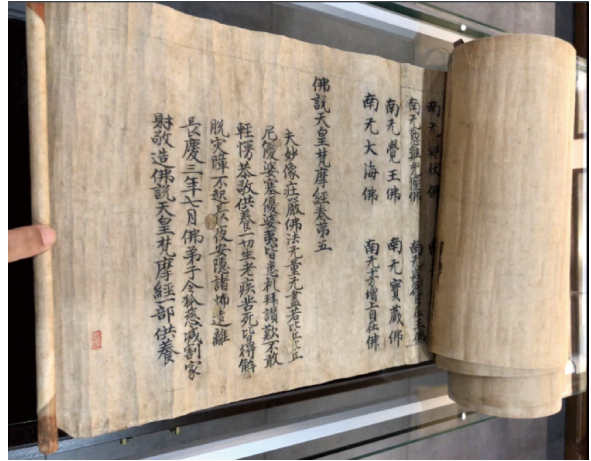 南无 佛
南无 佛
南无覺王佛 南无寶藏佛
南无大海佛 南无十方增上自在佛
佛說天皇梵摩經卷第五
夫妙像莊嚴佛法无量无盡若比丘比丘
尼優婆塞優婆夷皆悉礼拜讚歎不敢
輕慢恭敬供養一切生老疾苦死皆得解
脫灾障不起長夜安隱諸怖遠離
長慶三年七月佛弟子令狐慈減割家
財敬造佛說天皇梵摩經一部供養